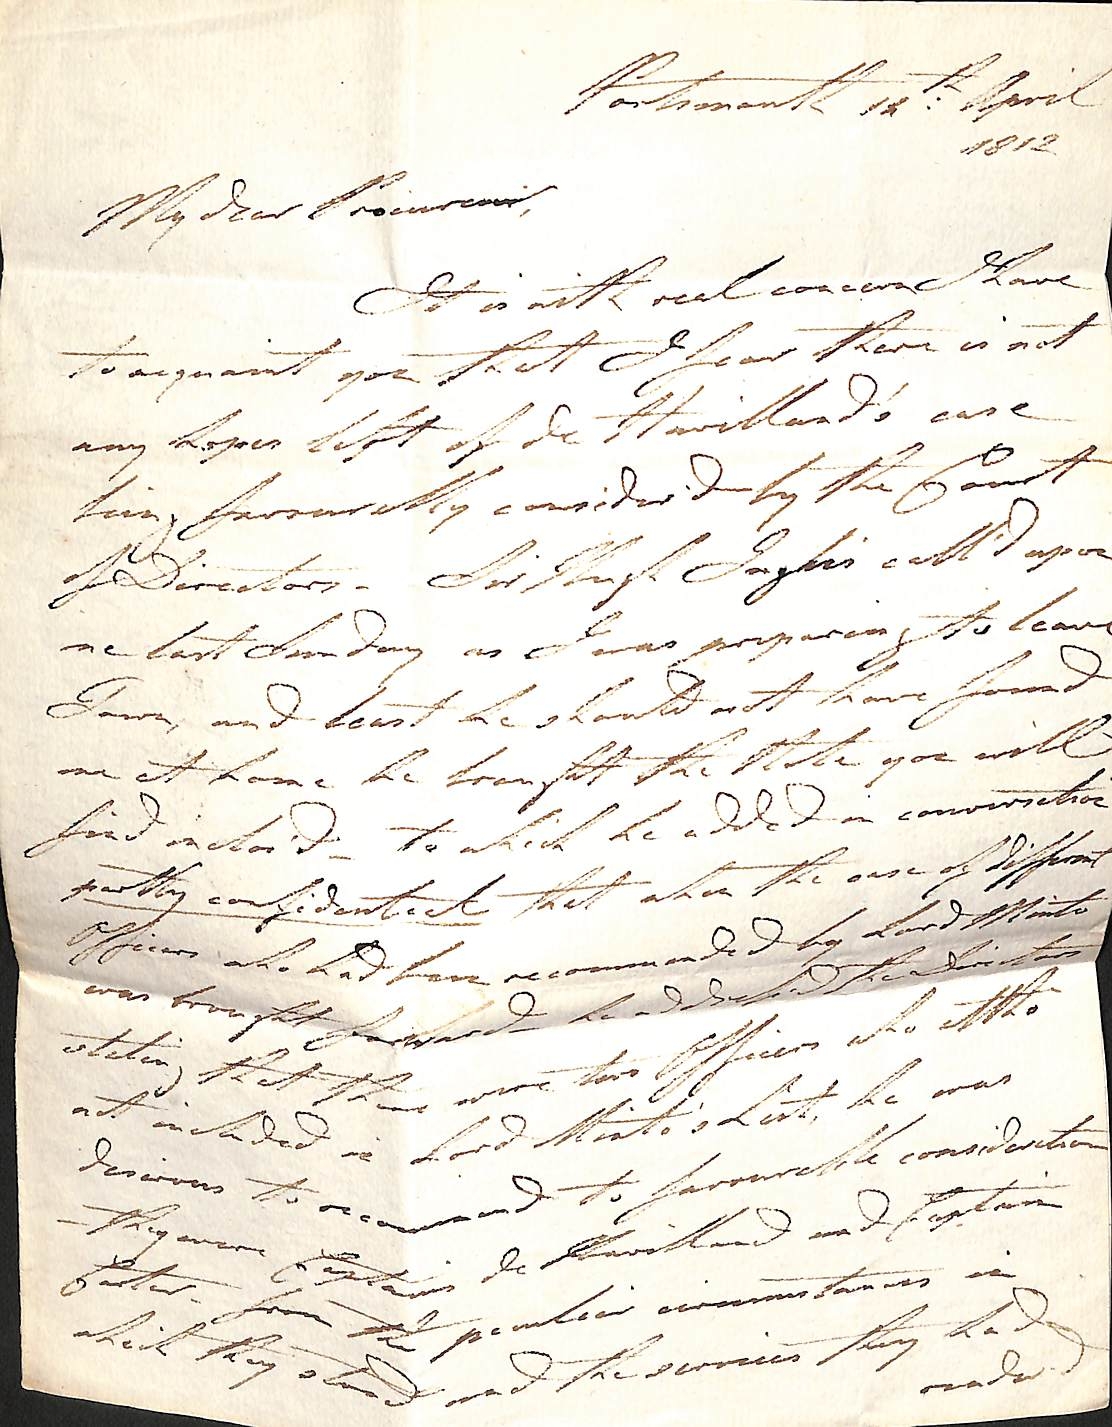 Portsmouth 12th: April
1812
My dear Procureur,
It is with real concern I have
to acquaint you that I fear there is not
any hopes left of de Havilland's case
being favourably consider'd by the Court
of Directors - Sir Hugh Inglis call'd upon
me last Sunday as I was preparing to leave
Town, and least he should not have found
me at home he brought the Note you will
find inclos'd - to which he added in conversation
partly confidential that when the case of different
Officers who had been recommended by Lord Minto
was brought forward he addressed the Directors
stating that there were two Officers who altho'
not included in Lord Minto's List, he was
desirous to recommend to favourable consideration
- they were Captains de Havilland and Captain
from the peculiar circumstances in
which they stood and the services they had
render'd